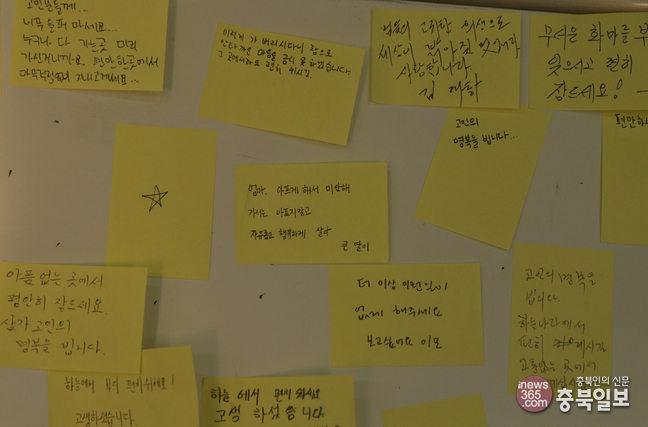 고인분들께...
너무 슬퍼 마세요...
누구나 다 가는곳 미리
가신거니까요. 편안한곳에서
아무걱정없이 지내고계세요~
이렇게 가버리시다니 참으로
안타까운 마음을 금치 못하겠습니다
그 곳에서라도 편히 쉬시길.
고귀한 희생으로
세상이
사랑합니다.
무서운 화마를
잊으시고 편히
잠드세요!
고인의
명복을 빕니다...
편안하
엄마. 아프게 해서 미안해
가서는 아프지말고
자유롭고 행복하게 살아
큰 딸이
아픔 없는 곳에서
편안히 잠드세요.
삼가 고인의
명복을 빕니다.
더 이상 이런일이
없게 해주세요
보고싶어요 이모
고인의 명복을
빕니다.
하늘나라에서
편히 계시길
고통없는 곳에서
하늘에서 편히쉬세요!
고생하셨습니다
하늘에서 편히 쉬세요
고생 하셨습니다
inews
365.com
충북인의 신문
충북일보